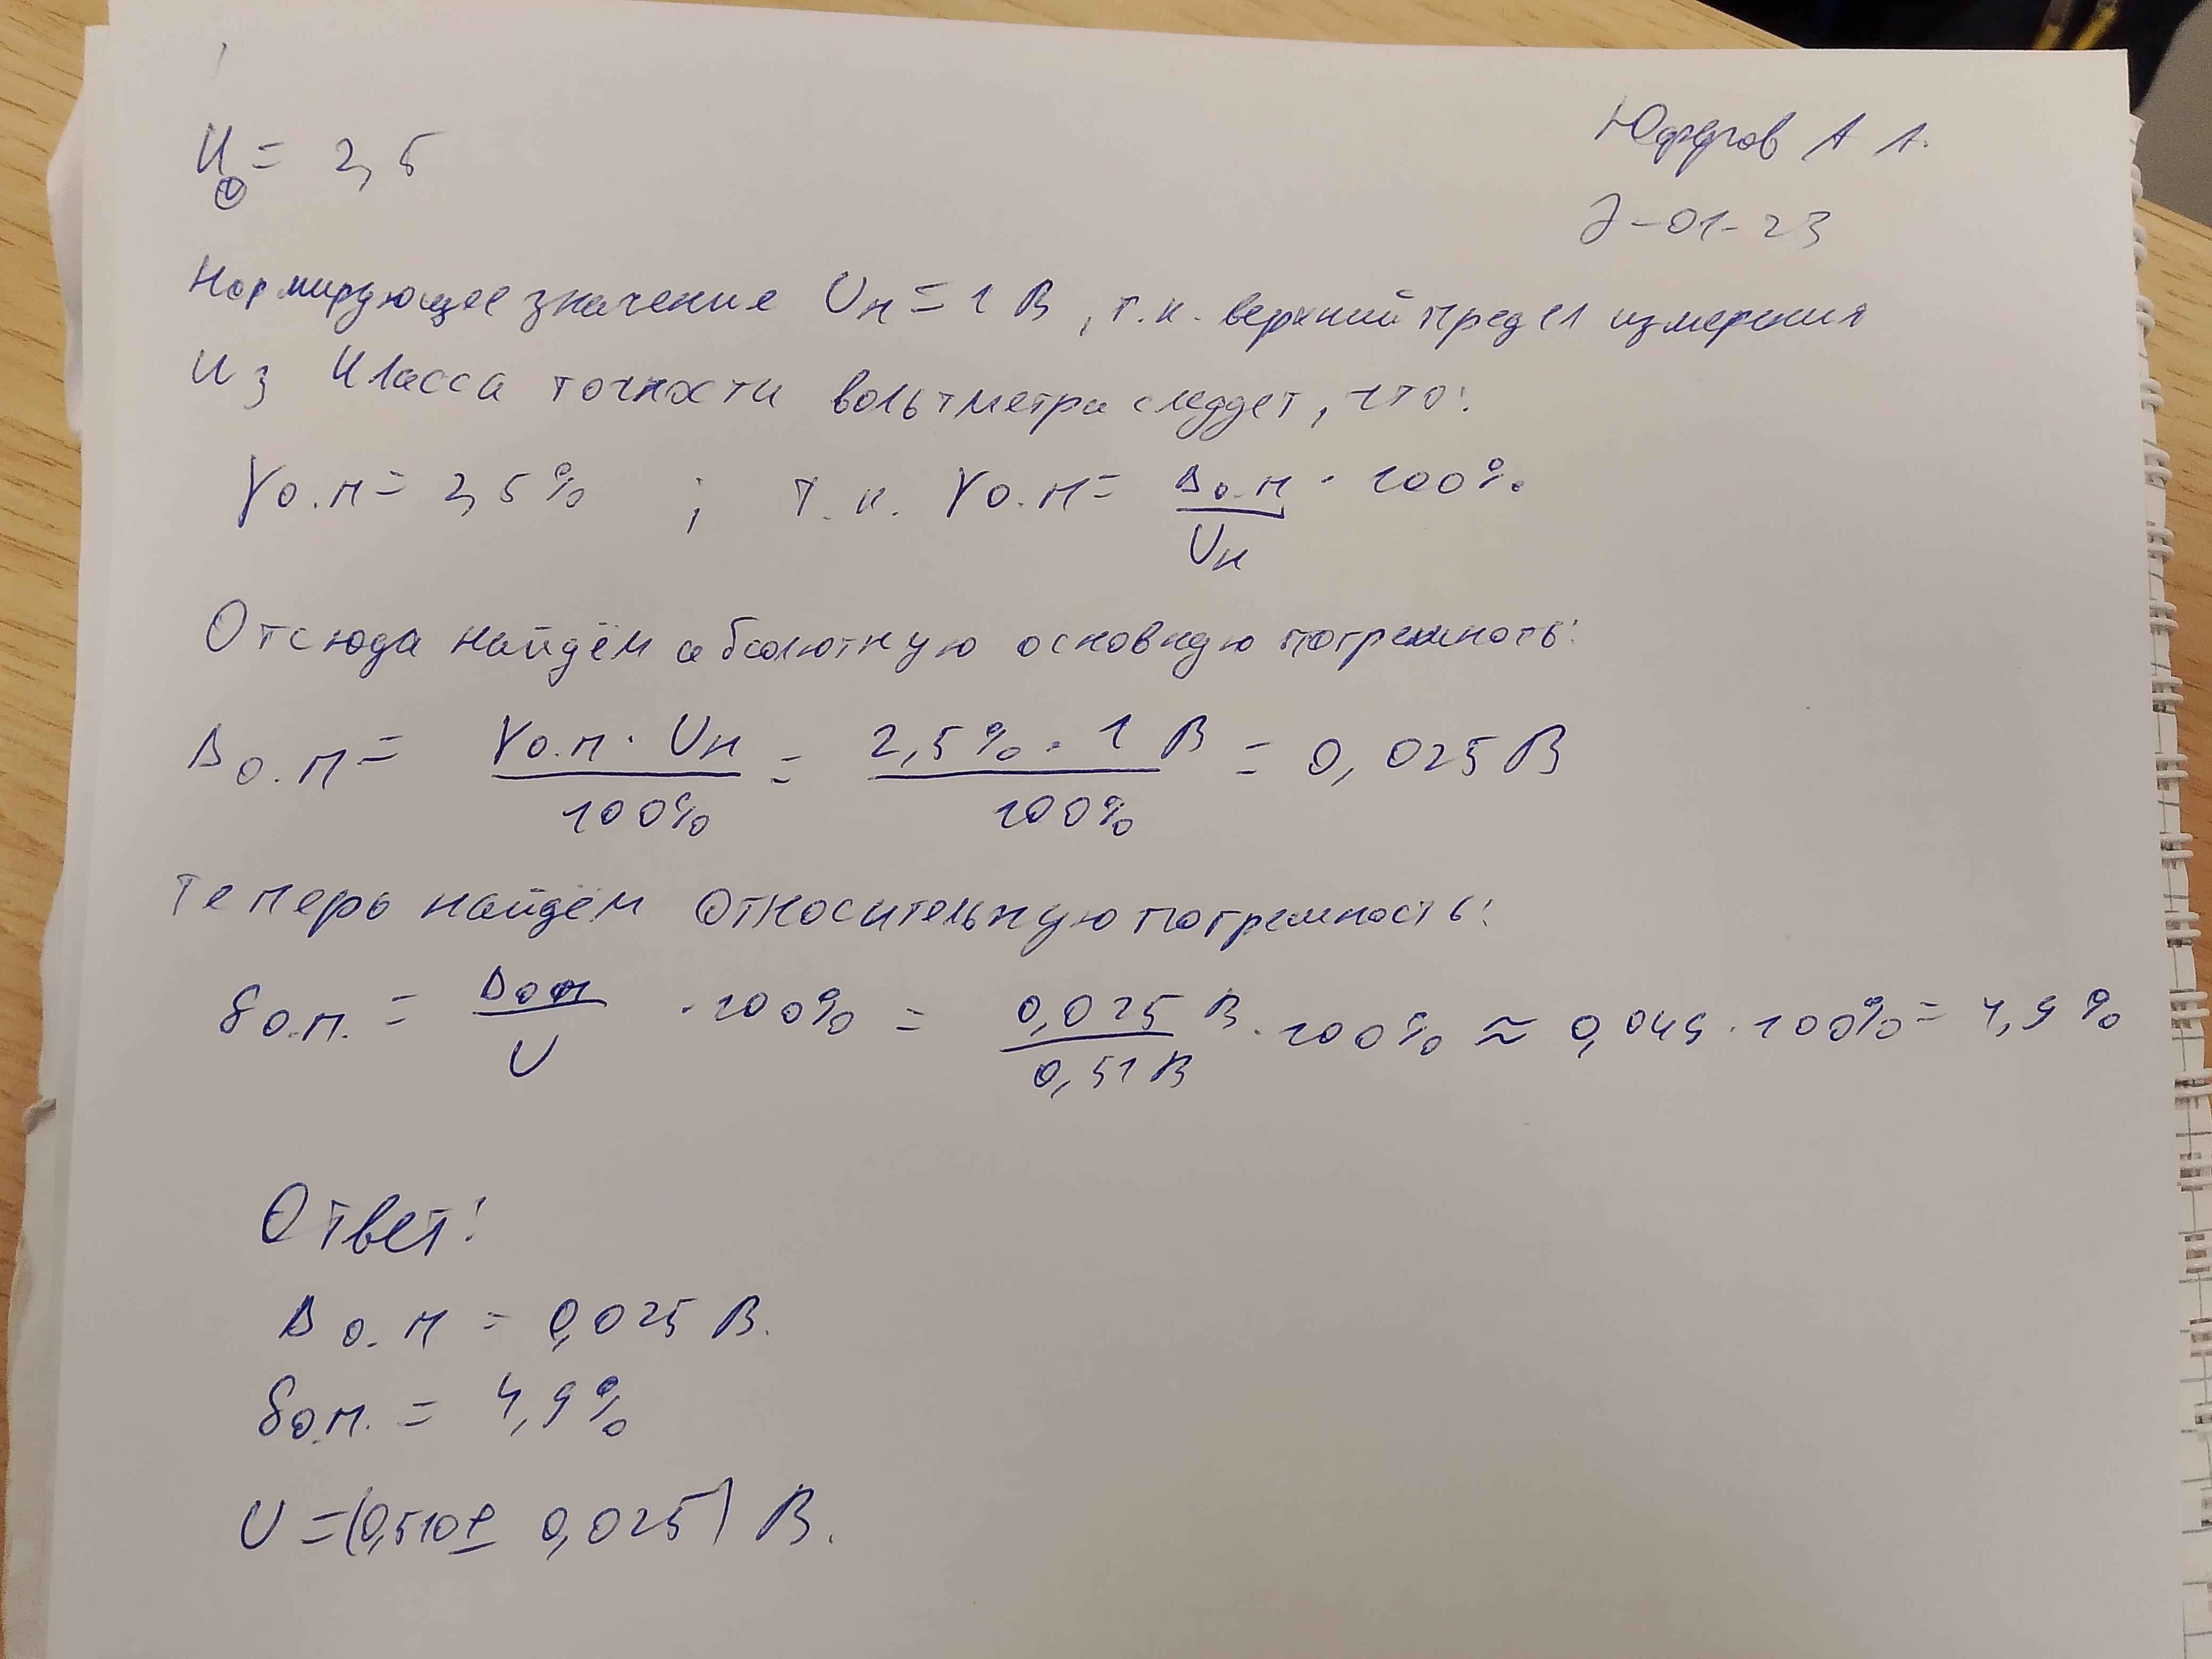 К = 2,5
V
А А.
Э-01-23
Нормирующее значение Uн = 1 В, т.к. верхний предел измерения
Из Класса точности вольтметра следует, что:
γо.п = 2,5% ; т.к. γо.п = Δо.п / Uн · 100%
Отсюда найдём абсолютную основную погрешность:
Δо.п = γо.п · Uн / 100% = 2,5% · 1 В / 100% = 0,025 В
Теперь найдём относительную погрешность:
δо.п. = Δоп / U · 100% = 0,025 В / 0,51 В · 100% ≈ 0,049 · 100% = 4,9%
Ответ:
Δо.п = 0,025 В.
δо.п. = 4,9%
U = (0,510 ± 0,025) В.